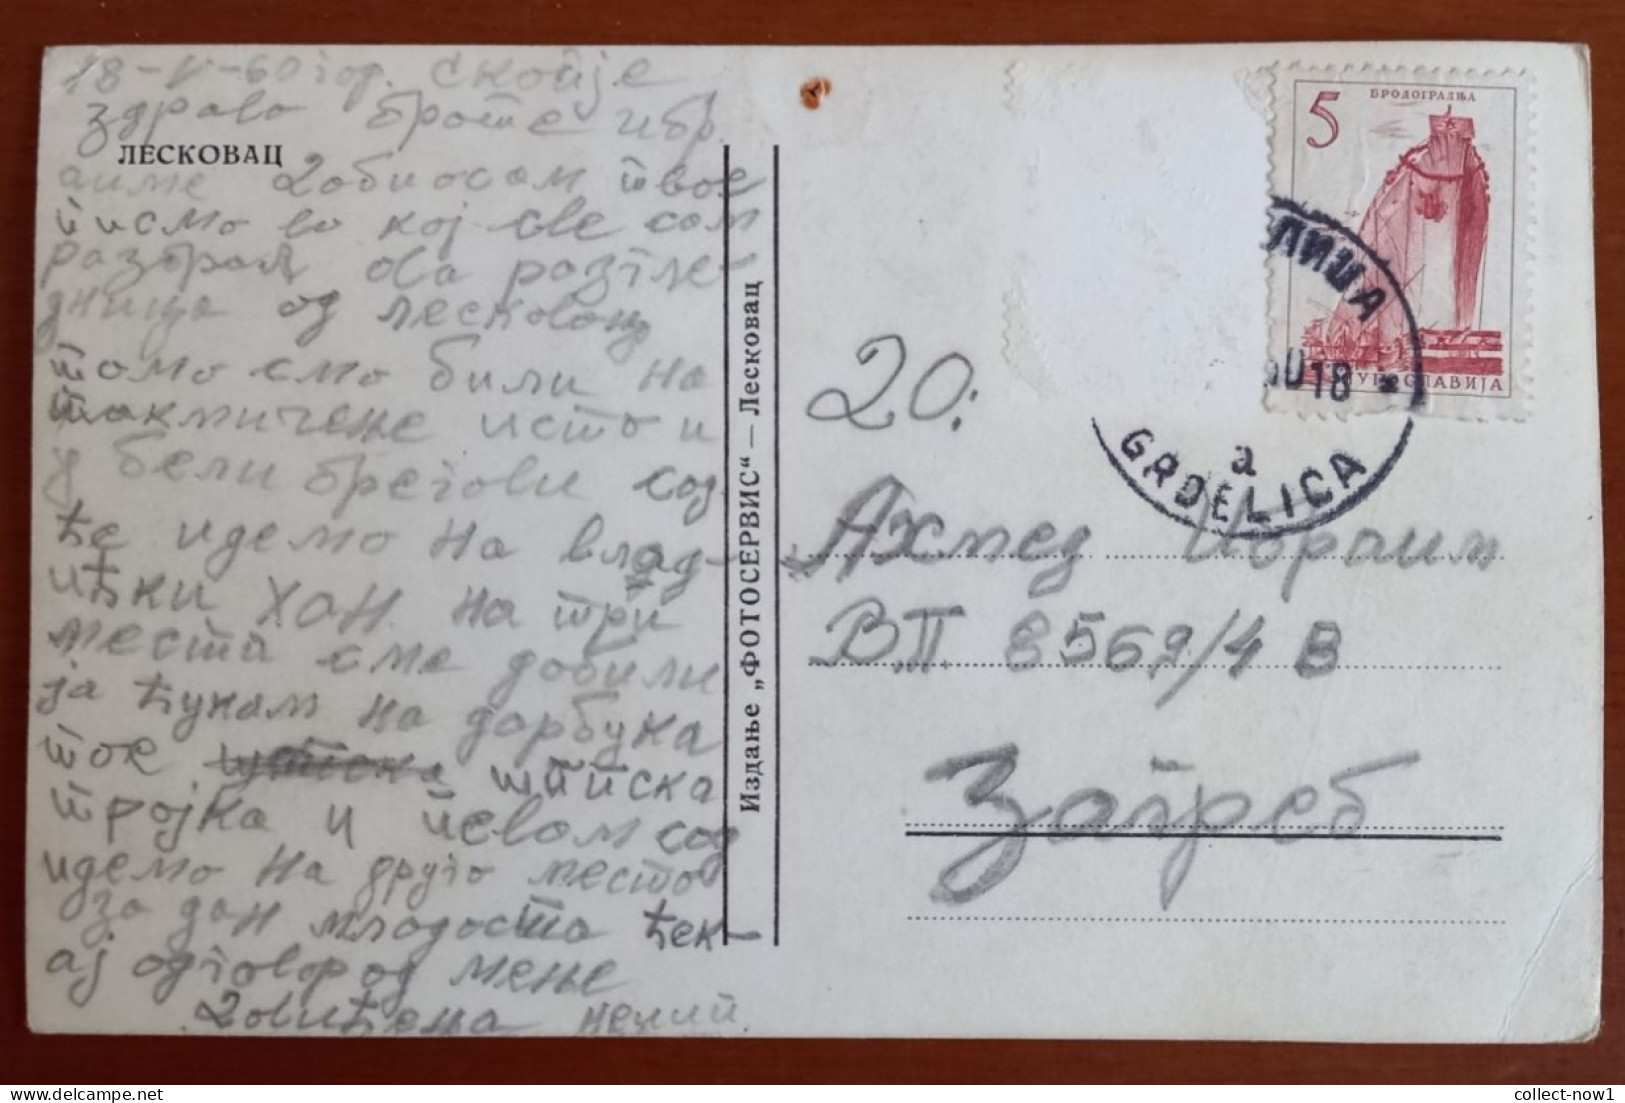 18-V-60 год. Скопје
здраво брате Ибр
аиме добиосам твое
писмо во кој све сам
разбрал ова разгле-
дница од лесковац
тамо смо били на
такмичење исто и
у бели брегови сад
ће идемо на влад-
ићки хан на три
места сме добили
ја ћукам на дарбука
тое штипска
тројка и певам сад
идемо на друго место
за дан младоста ћек-
ај одговор од мење
довићења
ЛЕСКОВАЦ
Издање „ФОТОСЕРВИС“ — Лесковац
5
БРОДОГРАДЊА
ЈУГОСЛАВИЈА
ЛИЦА
60 18
а
GRDELICA
20:
Ахмед Ибраим
В.П. 8569/4 В
Загреб
collect-now1